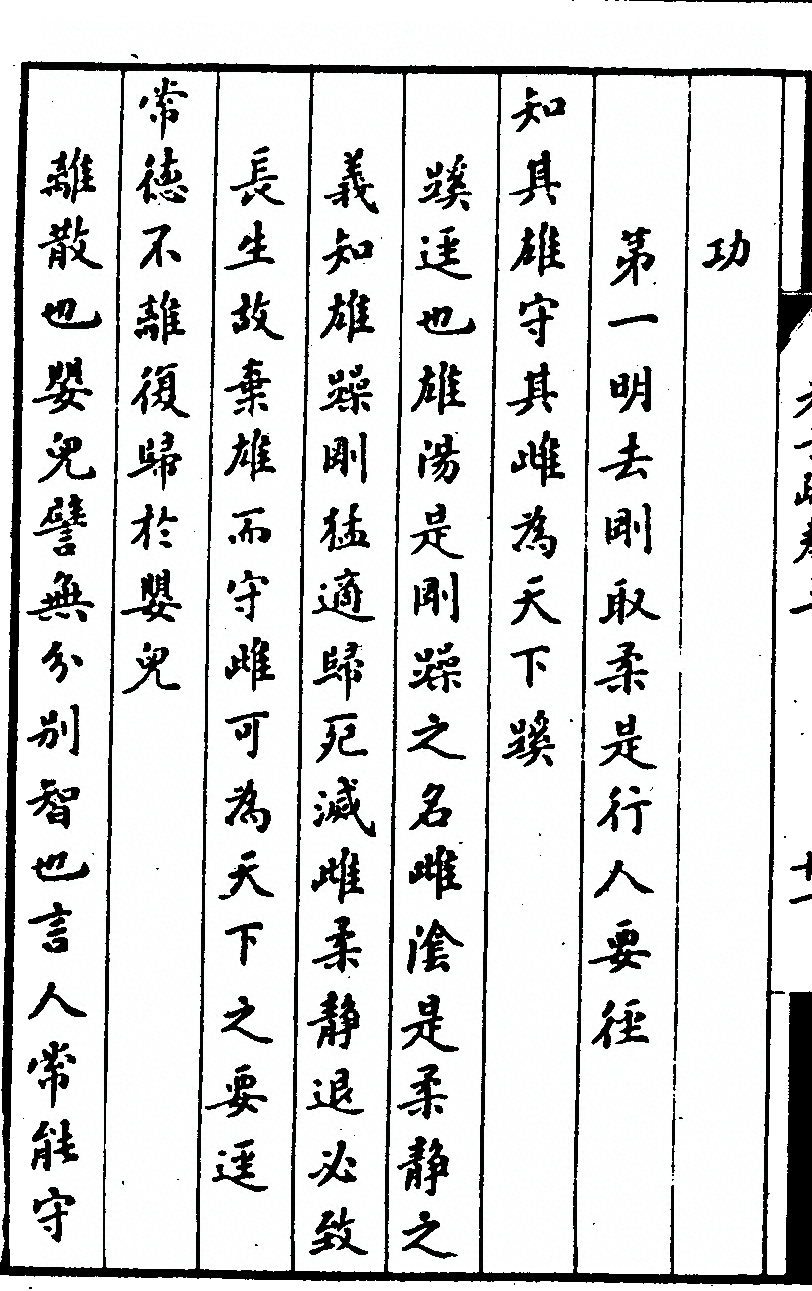 功
第一明去剛取柔是行人要徑
知其雄守其雌為天下蹊
蹊逕也雄陽是剛躁之名雌陰是柔静之
義知雄躁剛猛適歸死滅雌柔静退必致
長生故棄雄而守雌可為天下之要逕
常德不離復歸於嬰兒
離散也嬰兒譬無分别智也言人常能守